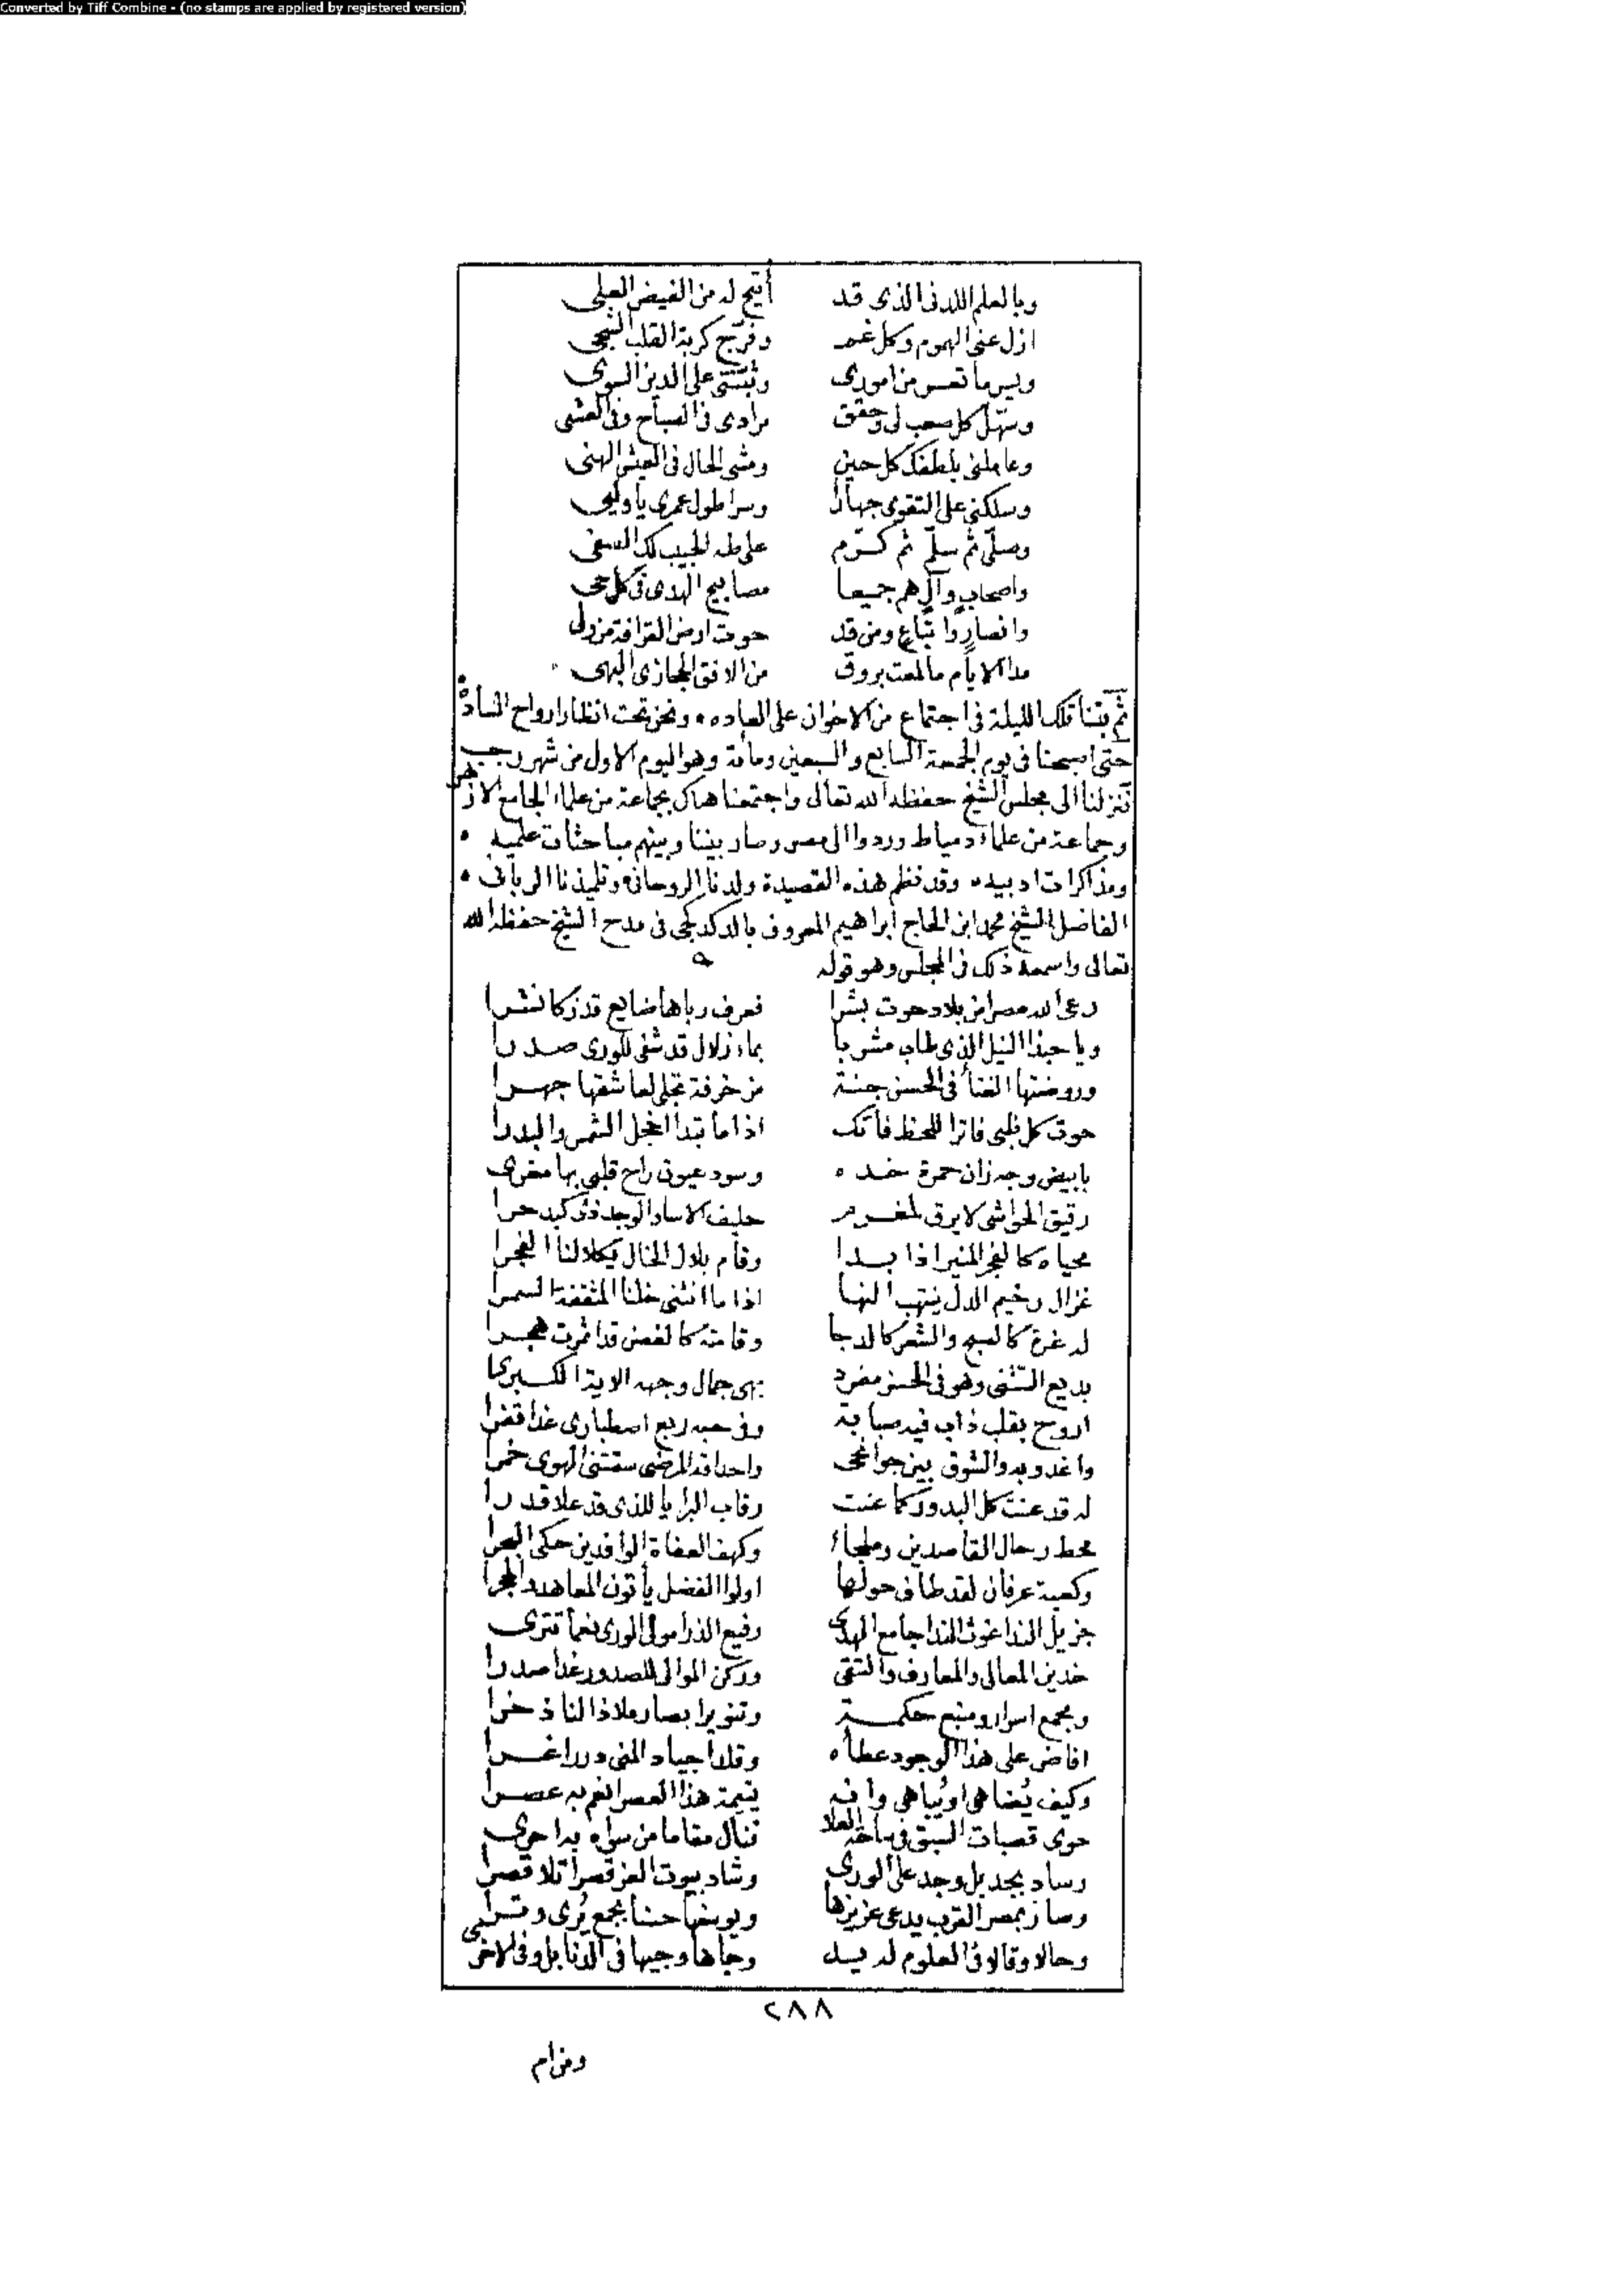 Converted by Tiff Combine - (no stamps are applied by registered version)
وبالعلم اللدنى الذى قد أتيح له من الفيض العلى
ازل عنى الهموم وكل غم وفرّج كربة القلب الشجى
ويسر ما تعسر من امورى وثبتنى على الدين السوى
وسهّل كل صعب لى وحقق مرادى فى الصباح وفى العشى
وعاملنى بلطفك كل حين ومشى الحال فى العيش الهنى
وسلكنى على التقوى جهارا وسرا طول عمرى يا وليى
وصلّى ثم سلّم ثم كرّم على طه الحبيب لك الصفى
واصحاب وآل هم جميعا مصابيح الهدى فى كل حى
وانصار واتباع ومن قد حوت ارض القرافة من ولى
مدا الايام ما لمعت بروق من الافق الحجازى البهى
ثم بتنا تلك الليلة فى اجتماع من الاخوان على العاده ونحن تحت انظار ارواح السادة
حتى اصبحنا فى يوم الجمعة السابع والسبعين ومائة وهو اليوم الاول من شهر رجب
فنزلنا الى مجلس الشيخ حفظه الله تعالى واجتمعنا هناك بجماعة من علماء الجامع الازهر
وجماعة من علماء دمياط وردوا الى مصر وصار بيننا وبينهم مباحثات علميه
ومذاكرات ادبيه وقد نظم هذه القصيدة ولدنا الروحانى وتلميذنا الربانى
الفاضل الشيخ محمد ابن الحاج ابراهيم المعروف بالدكدكجى فى مدح الشيخ حفظه الله
تعالى واسمعه ذلك فى المجلس وهو قوله
رعى الله مصرا من بلاد حوت بشرا فعرف رباها ضايع قد زكا نشرا
ويا حبذا النيل الذى طاب مشربا بماء زلال قد شفى للورى صدرا
وروضتها الغنا فى الحسن جنة مزخرفة تجلى لعاشقها جهرا
حوت كل ظبى فاتر اللحظ فاتك اذا ما تبدا اخجل الشمس والبدرا
بابيض وجه زان حمرة خده وسود عيون راح قلبى بها مغرى
رقيق الحواشى لا يرق لمغرم حليف الاسا والوجد ذو كبد حرا
محياه كالفجر المنير اذا بدا وقام بلال الخال يكلا لنا الفجرا
غزال رخيم الدل ينتهب النها اذا ما انثنى خلنا المثقفة السمرا
له غرة كالصبح والشعر كالدجا وقامته كالغصن قد اثمرت هجرا
بديع التثنى وهو فى الحسن مفرد يرى جمال وجهه الاية الكبرى
اروح بقلب ذاب فيه صبابة وفى حبه ربع اصطبارى غدا قفرا
واغدو به والشوق بين جوانحى واحداقه المرضى سقتنى الهوى خمرا
له قد عنت كل البدور كما عنت رقاب البرايا للذى قد علا قدرا
محط رحال القاصدين وملجاء وكهف العفاة الوافدين حكى البحرا
وكعبة عرفان لقد طاف حولها اولوا الفضل يأتون المعاهد والحجرا
جزيل الندا غوث الندا جامع الهدى رفيع الذرا مولى الورى نعما تترى
خدين المعالى والمعارف والتقى وركن الموالى للصدور غدا صدرا
ومجمع اسرار ومنبع حكمة وتنوير ابصار ملاذا لنا ذخرا
افاض على هذا الوجود عطاه وقلد اجياد المنى دررا غرا
وكيف يضاهى او يباهى وانه يتيمة هذا العصر انعم به عصرا
حوى قصبات السبق فى ساحة العلا فنال مقاما من سواه به احرى
وساد بجد بل وجد على الورى وشاد بيوت العز قصرا تلا قصرا
وسار بمصر القرب يدعى عزيزها ويوسفها حسنا بجمع يرى
وحالا وقالا فى العلوم له يد وجاها وجيها فى الدنا بل وفى الاخرى
٢٨٨
ومن ام